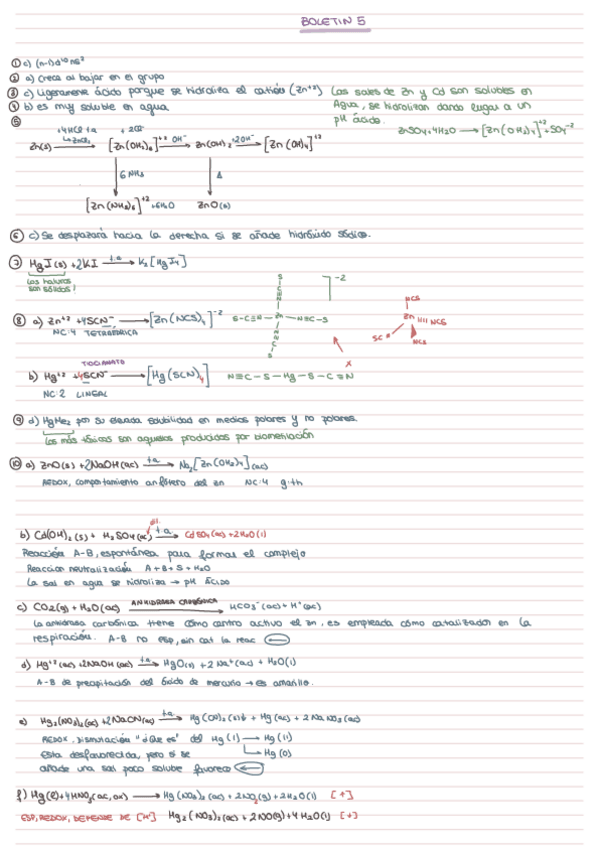 BOLETIN 5
① c) (n-1)d¹⁰ns²
② a) Crece al bajar en el grupo
③ c) Ligeramente ácido porque se hidroliza el catión (Zn⁺²)
④ b) es muy soluble en agua
Las sales de Zn y Cd son solubles en
Agua, se hidrolizan dando lugar a un
pH ácido.
ZnSO₄+4H₂O → [Zn(OH₂)₄]⁺²+SO₄⁻²
⑤
Zn(s) → [Zn(OH₂)₆]⁺² OH⁻ → Zn(OH)₂ +2OH⁻ → [Zn(OH)₄]⁺²
6NH₃
Δ
[Zn(NH₃)₆]⁺² +6H₂O
ZnO(s)
⑥ c) Se desplazará hacia la derecha si se añade hidróxido sódico.
⑦ HgI(s) +2KI t.a → K₂[HgI₄]
Los haluros
son sólidos!
⑧ a) Zn⁺² +4SCN⁻ → [Zn(NCS)₄]⁻²
NC:4 TETRAÉDRICA
S-C≡N-Zn-N≡C-S
-2
NCS
Zn
NCS
SC
NCS
X
TIOCIANATO
b) Hg⁺² +4SCN⁻ → [Hg(SCN)₄]
N≡C-S-Hg-S-C≡N
NC:2 LINEAL
⑨ d) HgMe₂ por su elevada solubilidad en medios polares y no polares.
Los más tóxicos son aquellos producidos por biometilación
⑩ a) ZnO(s) +2NaOH(ac) t.a → Na₂[Zn(OH₂)₄](ac)
REDOX, comportamiento anfótero del Zn NC:4 g:th
dil.
b) Cd(OH)₂(s) + H₂SO₄(ac) t.a → CdSO₄(ac)+2H₂O(l)
Reacción A-B, espontánea para formar el complejo
Reaccion neutralización A+B=S+H₂O
La sal en agua se hidroliza → pH ácido
c) CO₂(g)+H₂O(ac) ANHIDRASA CARBÓNICA → HCO₃⁻(ac)+H⁺(ac)
La anhidrasa carbónica tiene como centro activo el Zn, es empleada como catalizador en la
respiración. A-B no esp, sin cat la reac ←
d) Hg⁺²(ac)+2NaOH(ac) t.a → HgO(s)+2Na⁺(ac)+H₂O(l)
A-B de precipitación del óxido de mercurio → es amarillo.
e) Hg₂(NO₃)₂(ac)+2NaCN(ac) t.a → Hg(CN)₂(s)↓ + Hg(ac) + 2NaNO₃(ac)
REDOX, Dismutación del Hg(I) → Hg(II)
Esta desfavorecida, pero si se → Hg(0)
añade una sal poco soluble favorece ←
f) Hg(l)+4HNO₃(ac,ox) → Hg(NO₃)₂(ac)+2NO₂(g)+2H₂O(l) [+]
ESP, REDOX, DEPENDE DE [H⁺] Hg₂(NO₃)₂(ac)+2NO(g)+4H₂O(l) [+]